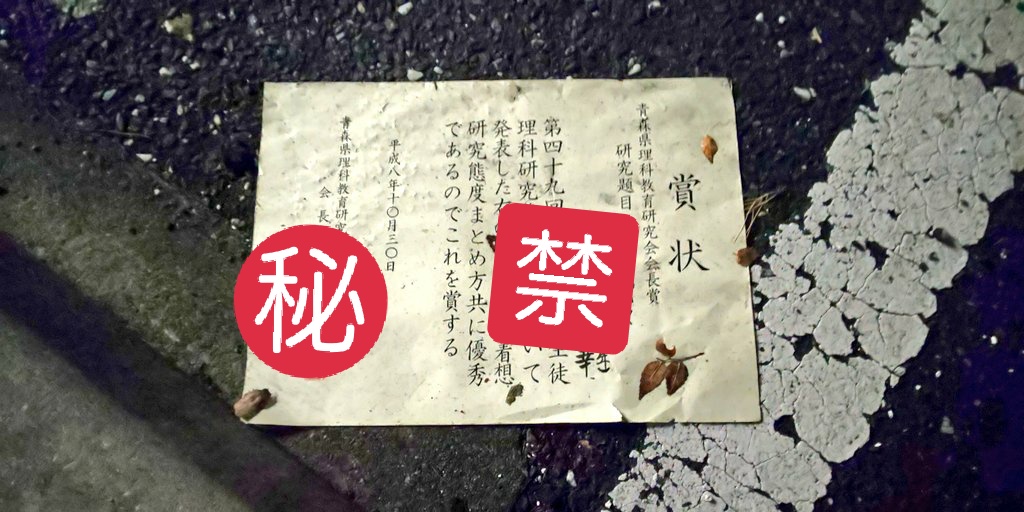 賞状
青森県理科教育研究会会長賞
研究題目
第四十九回
徒
理科研究
いて
発表した右
着想
研究態度まとめ方共に優秀
であるのでこれを賞する
平成八年十〇月三〇日
青森県理科教育研究
会長
禁
秘